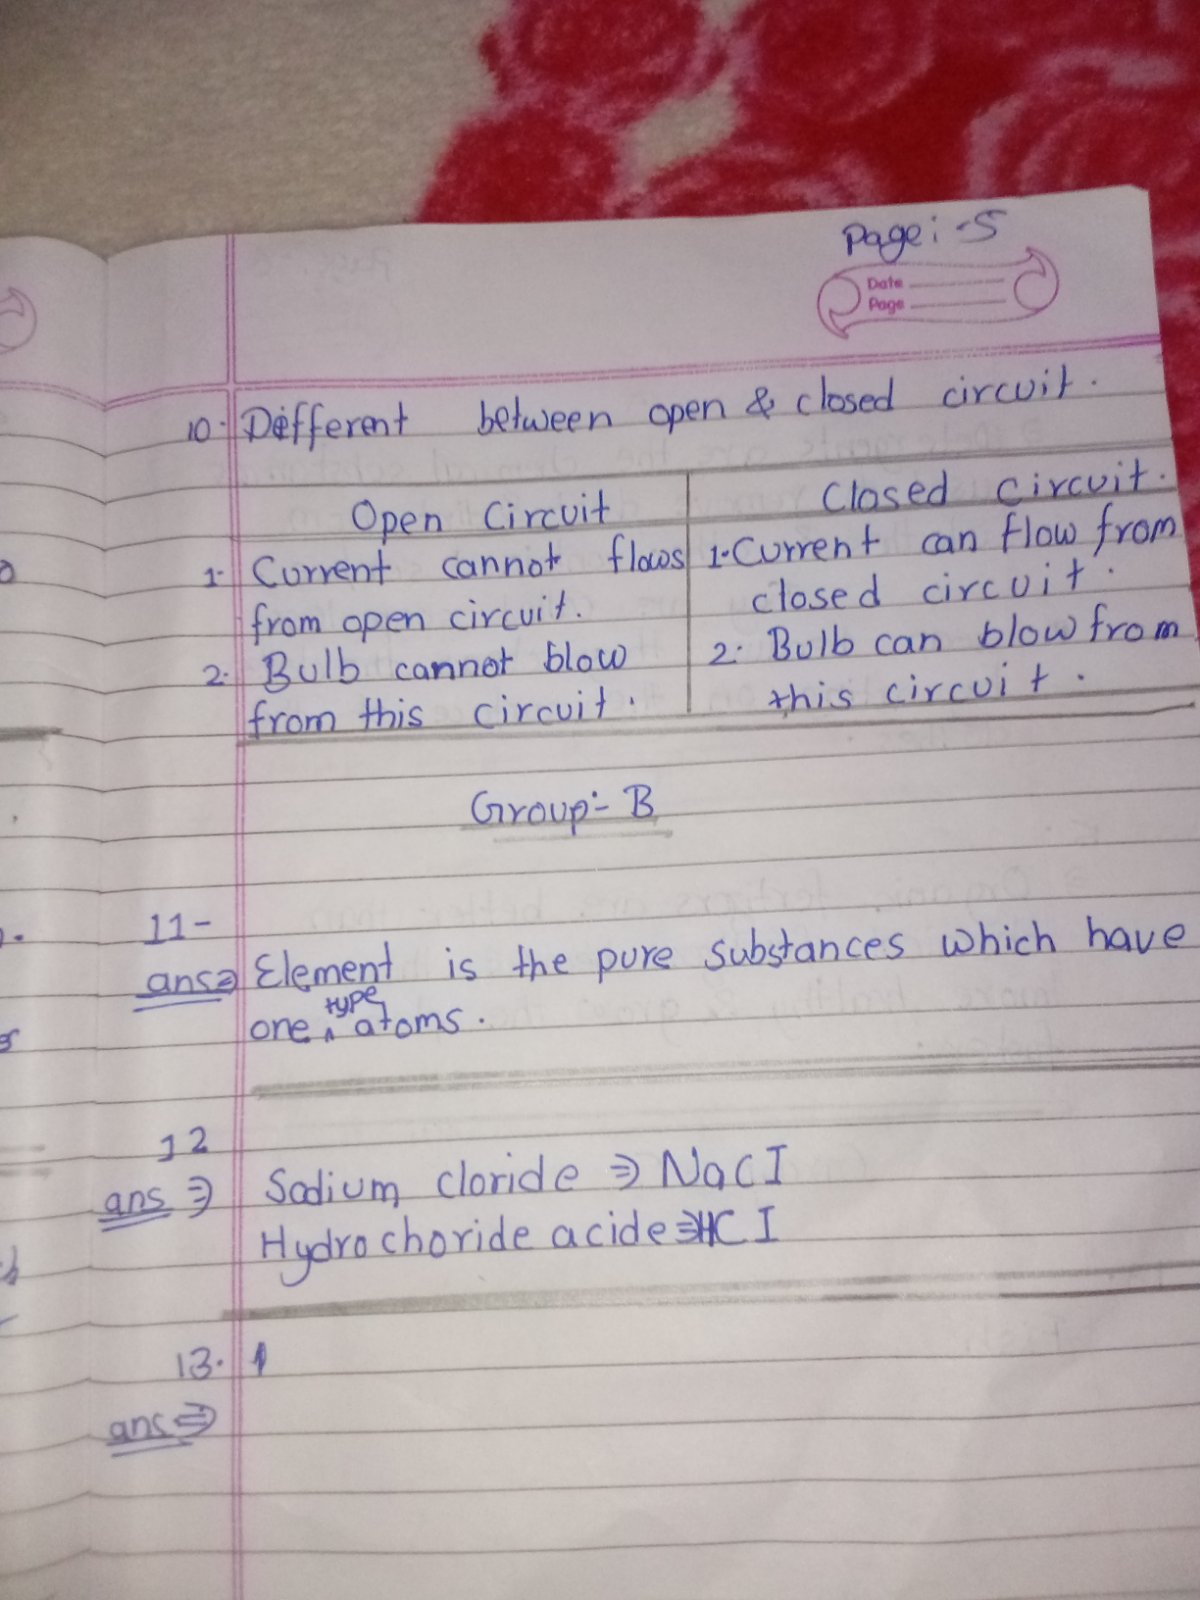 Page: -5
Date
Page
10. Different between open & closed circuit.
Open Circuit
Closed Circuit.
1. Current cannot flows
from open circuit.
2. Bulb cannot blow
from this circuit.
1. Current can flow from
closed circuit.
2. Bulb can blow from
this circuit.
Group:- B
11-
ans⇒ Element is the pure substances which have
one type atoms.
12
ans ⇒ Sodium cloride ⇒ NaCI
Hydrochoride acide ⇒ HCI
13.
ans ⇒